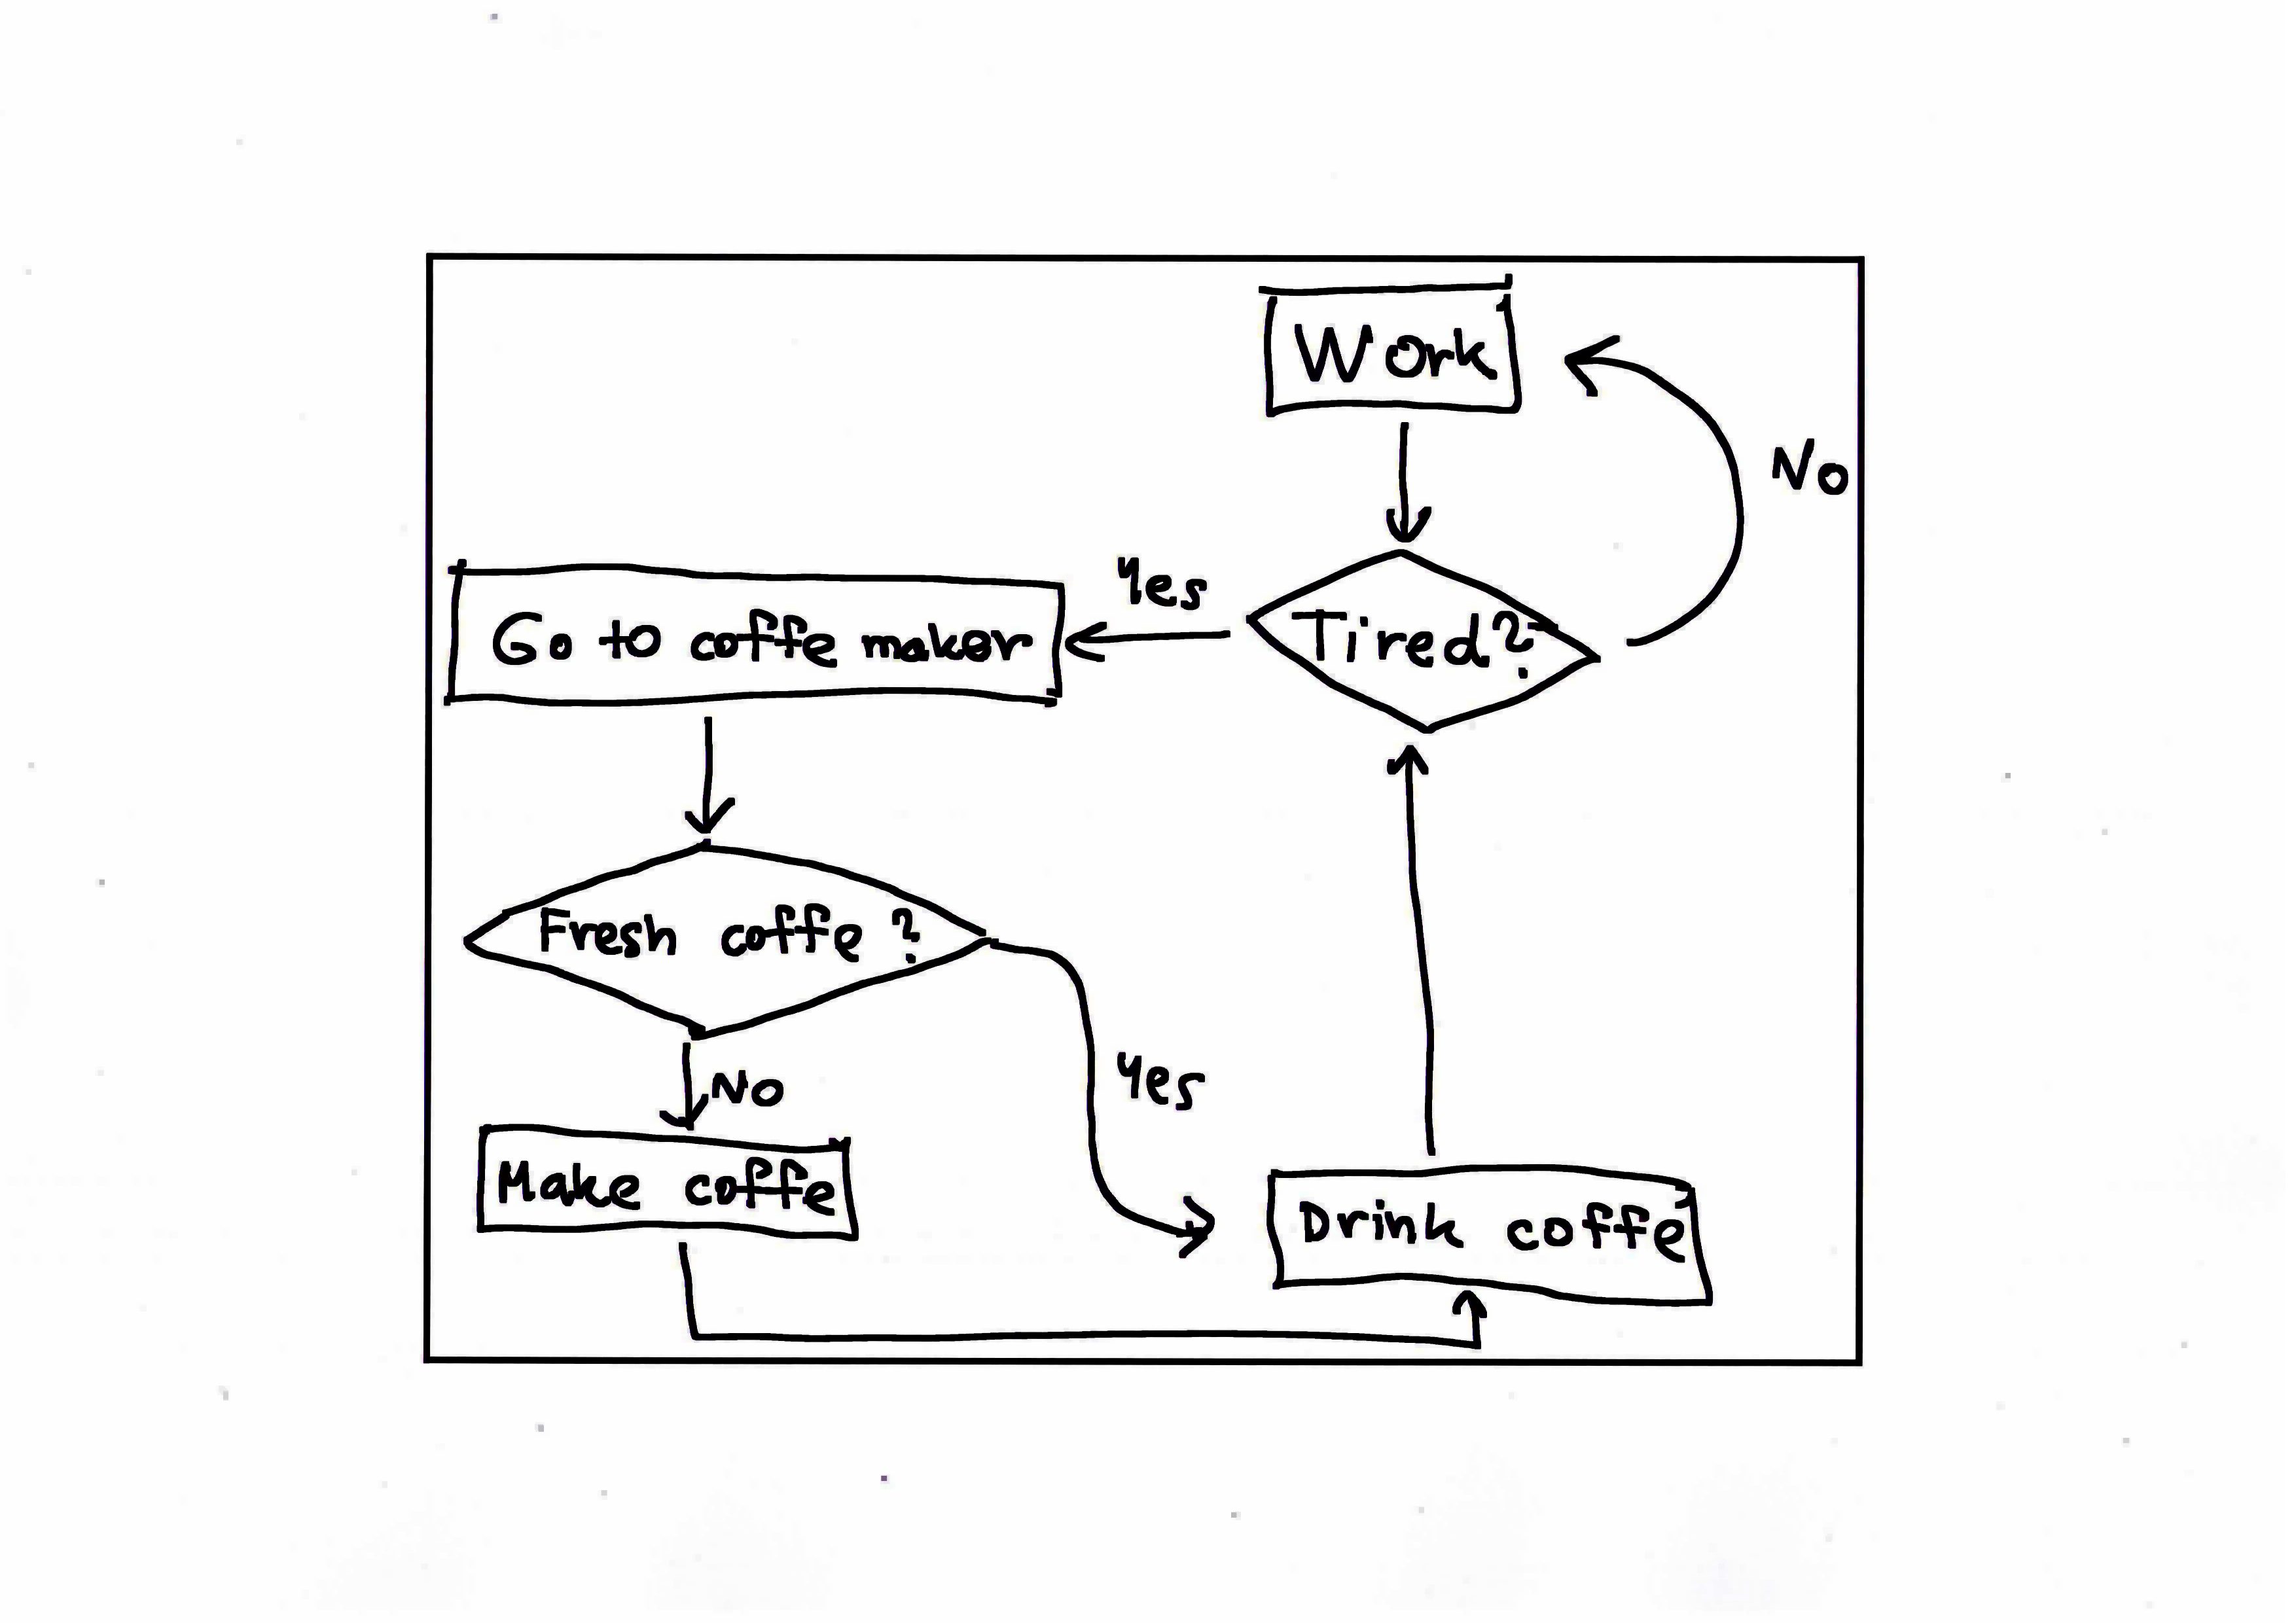 Work
No
Yes
Tired?
Go to coffe maker
Fresh coffe ?
No
Yes
Make coffe
Drink coffe